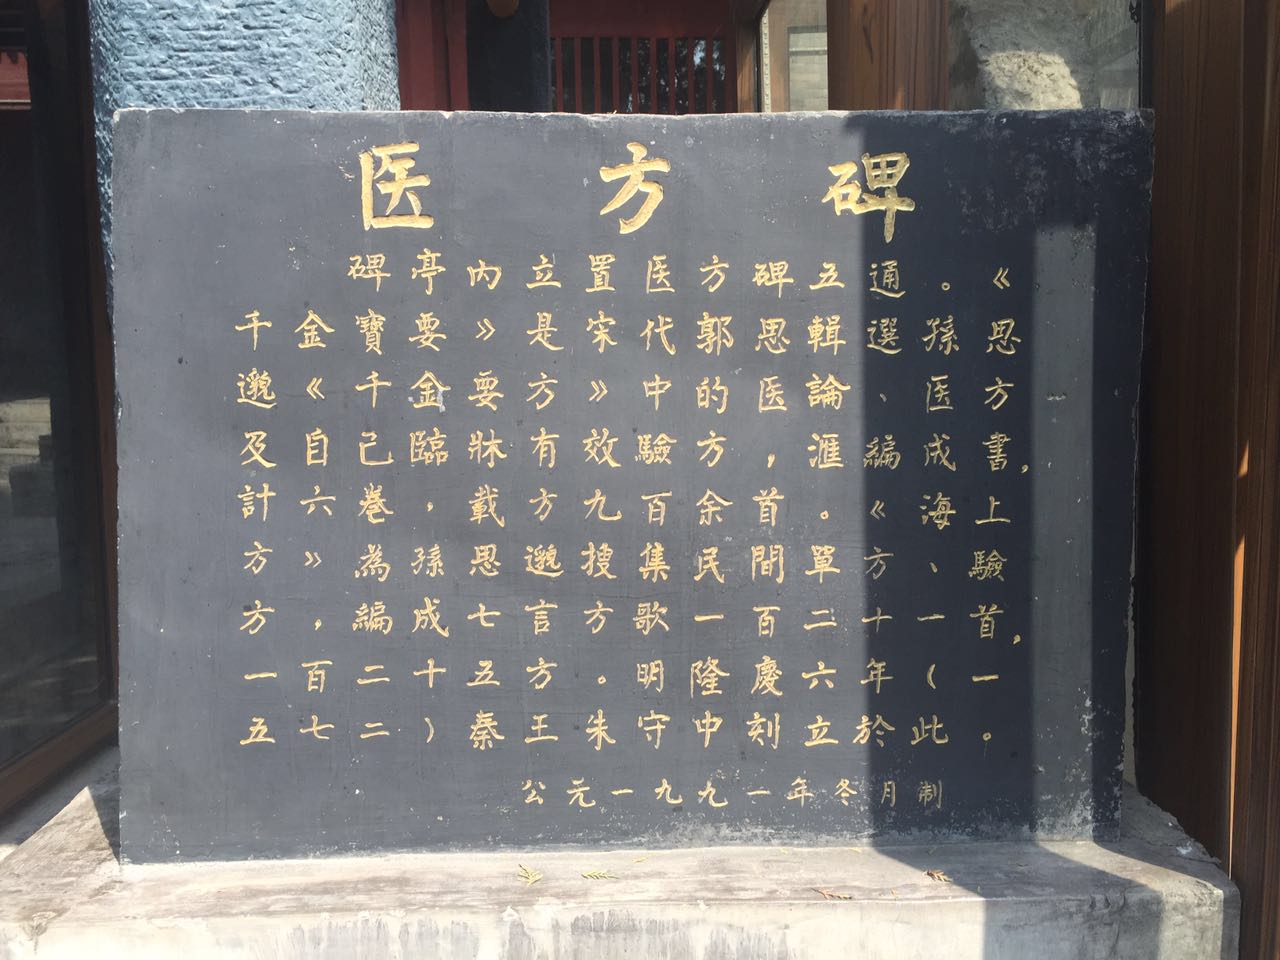 医方碑
碑亭内立置医方碑五通。《
千金寶要》是宋代郭思輯選孫思
邈《千金要方》中的医論、医方
及自己臨牀有效驗方，滙編成書，
計六卷，載方九百余首。《海上
方》為孫思邈搜集民間單方、驗
方，編成七言方歌一百二十一首，
一百二十五方。明隆慶六年（一
五七二）秦王朱守中刻立於此。
公元一九九一年冬月制